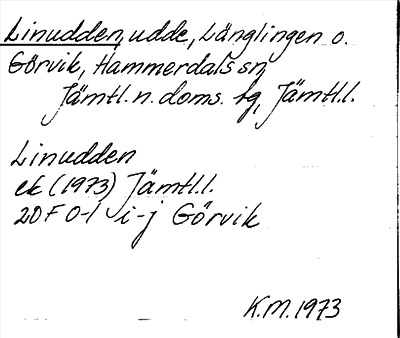 Linudden, udde, Länglingen o.
Görvik, Hammerdals sn,
Jämtl. n. doms. tg, Jämtl.l.
Linudden
ek (1973) Jämtl.l.
20F 0-1 i-j Görvik
K.M. 1973